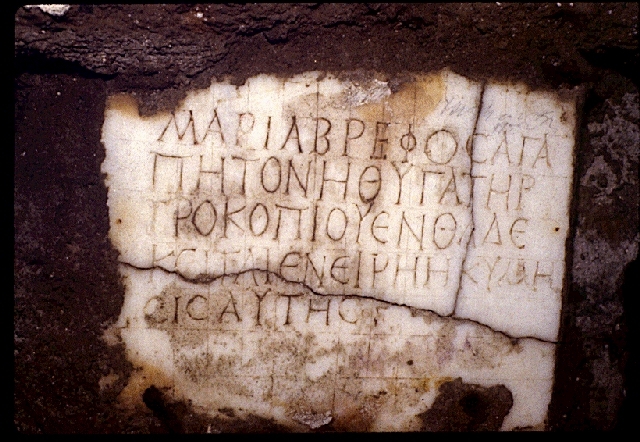 ΜΑΡΙΑΒΡΕΦΟϹΑΓΑ
ΠΗΤΟΝΗΘΥΓΑΤΗΡ
ΠΡΟΚΟΠΙΟΥΕΝΘΑΔΕ
ΚΕΙΤΑΙΕΝΕΙΡΗΝΗΚΥΜΗ
ϹΙϹΑΥΤΗϹ